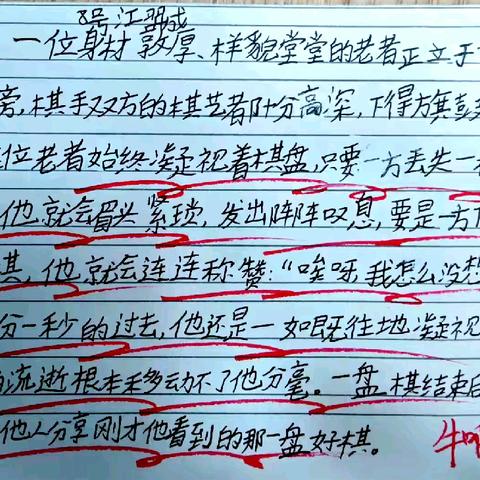 8号江翌成
一位身材敦厚、样貌堂堂的老者正立于
旁,棋手双方的棋艺都十分高深,下得旗鼓
位老者始终凝视着棋盘,只要一方丢失一
他就会眉头紧琐,发出阵阵叹息,要是一方
棋,他就会连连称赞:“唉呀,我怎么没想
分一秒的过去,他还是一如既往地凝视
流逝根本移动不了他分毫。一盘棋结束后
他人分享刚才他看到的那一盘好棋。
牛